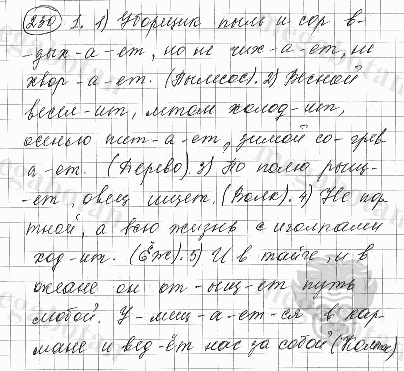 230 1. 1) Уборщик пыль и сор в-
-дых-а-ет, но не чих-а-ет, не
хвор-а-ет. (Пылесос). 2) Весной
весел-ит, летом холод-ит,
осенью пит-а-ет, зимой со-грев-
а-ет. (Дерево). 3) По полю рыщ-
-ет, овец ищет. (Волк). 4) Не пор-
тной, а всю жизнь с иголками
ход-ит. (Ёж). 5) И в тайге, и в
океане он от-ыщ-ет путь
любой. У-мещ-а-ет-ся в кар-
мане и вед-ёт нас за собой (Компас)